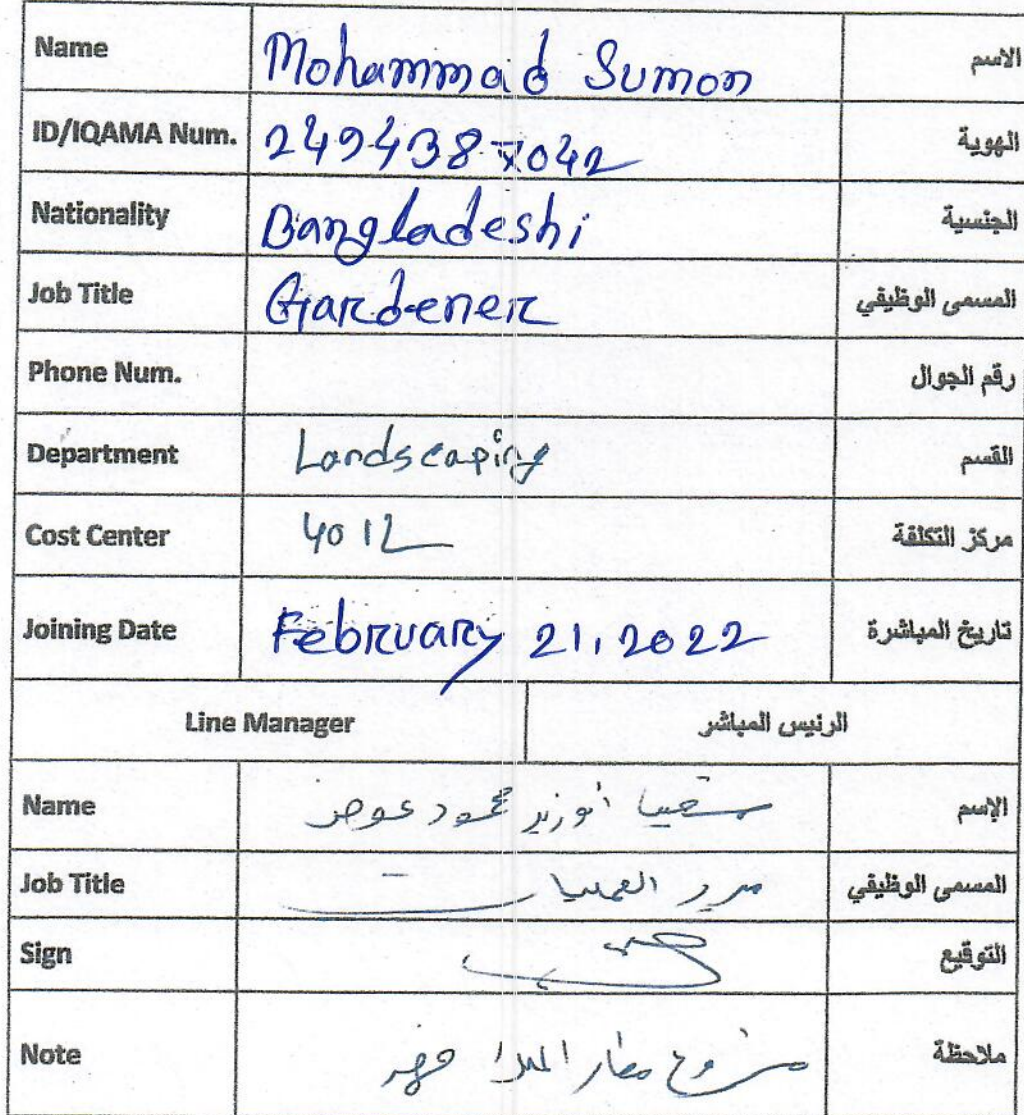 Name Mohammad Sumon الاسم
ID/IQAMA Num. 2494387042 الهوية
Nationality Bangladeshi الجنسية
Job Title Gardener المسمى الوظيفي
Phone Num. رقم الجوال
Department Landscaping القسم
Cost Center 4012 مركز التكلفة
Joining Date February 21, 2022 تاريخ المباشرة
Line Manager الرئيس المباشر
Name محمود عوض الإسم
Job Title مدير العمليات المسمى الوظيفي
Sign التوقيع
Note مشروع مطار الملك فهد ملاحظة